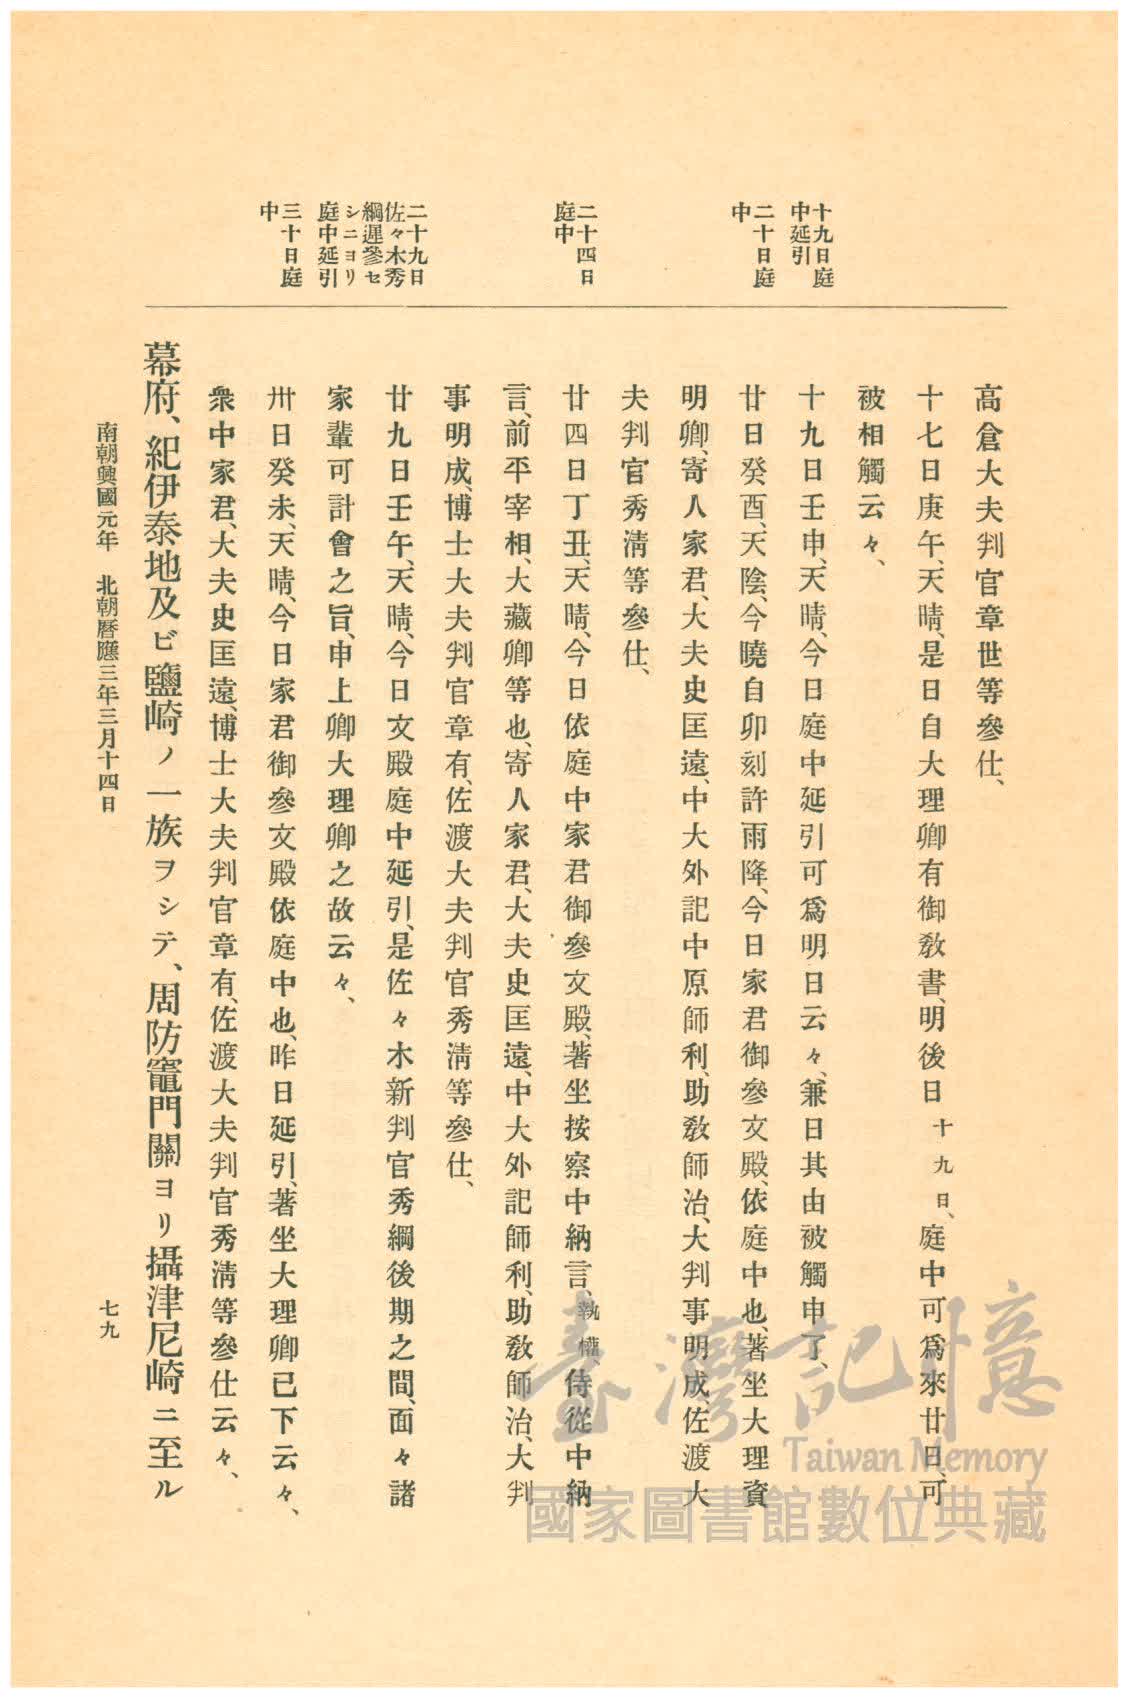 十九日庭
中延引
二十日庭
中
二十四日
庭中
二十九日
佐々木秀
綱遲參セ
シニヨリ
庭中延引
三十日庭
中
高倉大夫判官章世等參仕、
十七日庚午、天晴、是日自大理卿有御敎書、明後日十九日、庭中可爲來廿日、可
被相觸云々、
十九日壬申、天晴、今日庭中延引可爲明日云々、兼日其由被觸申了、
廿日癸酉、天陰、今曉自卯刻許雨降、今日家君御參文殿、依庭中也、著坐大理資
明卿、寄人家君、大夫史匡遠、中大外記中原師利、助敎師治、大判事明成佐渡大
夫判官秀淸等參仕、
廿四日丁丑、天晴、今日依庭中家君御參文殿、著坐按察中納言、執權、侍從中納
言、前平宰相、大藏卿等也、寄人家君、大夫史匡遠、中大外記師利、助敎師治、大判
事明成、博士大夫判官章有、佐渡大夫判官秀淸等參仕、
廿九日壬午、天晴、今日文殿庭中延引、是佐々木新判官秀綱後期之間、面々諸
家輩可計會之旨、申上卿大理卿之故云々、
卅日癸未、天晴、今日家君御參文殿依庭中也、昨日延引、著坐大理卿已下云々、
衆中家君、大夫史匡遠、博士大夫判官章有、佐渡大夫判官秀淸等參仕云々、
幕府、紀伊泰地及ビ鹽崎ノ一族ヲシテ、周防竈門關ヨリ攝津尼崎ニ至ル
南朝興國元年 北朝曆應三年三月十四日
七九
臺灣記憶
Taiwan Memory
國家圖書館數位典藏